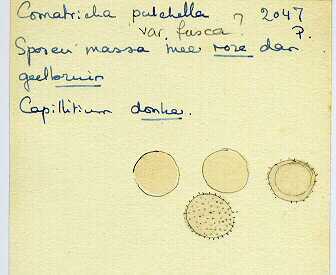 Comatricha pulchella ? 2047
var. fusca. P.
Sporen massa meer roze dan
geelbruin
Capillitium donker.